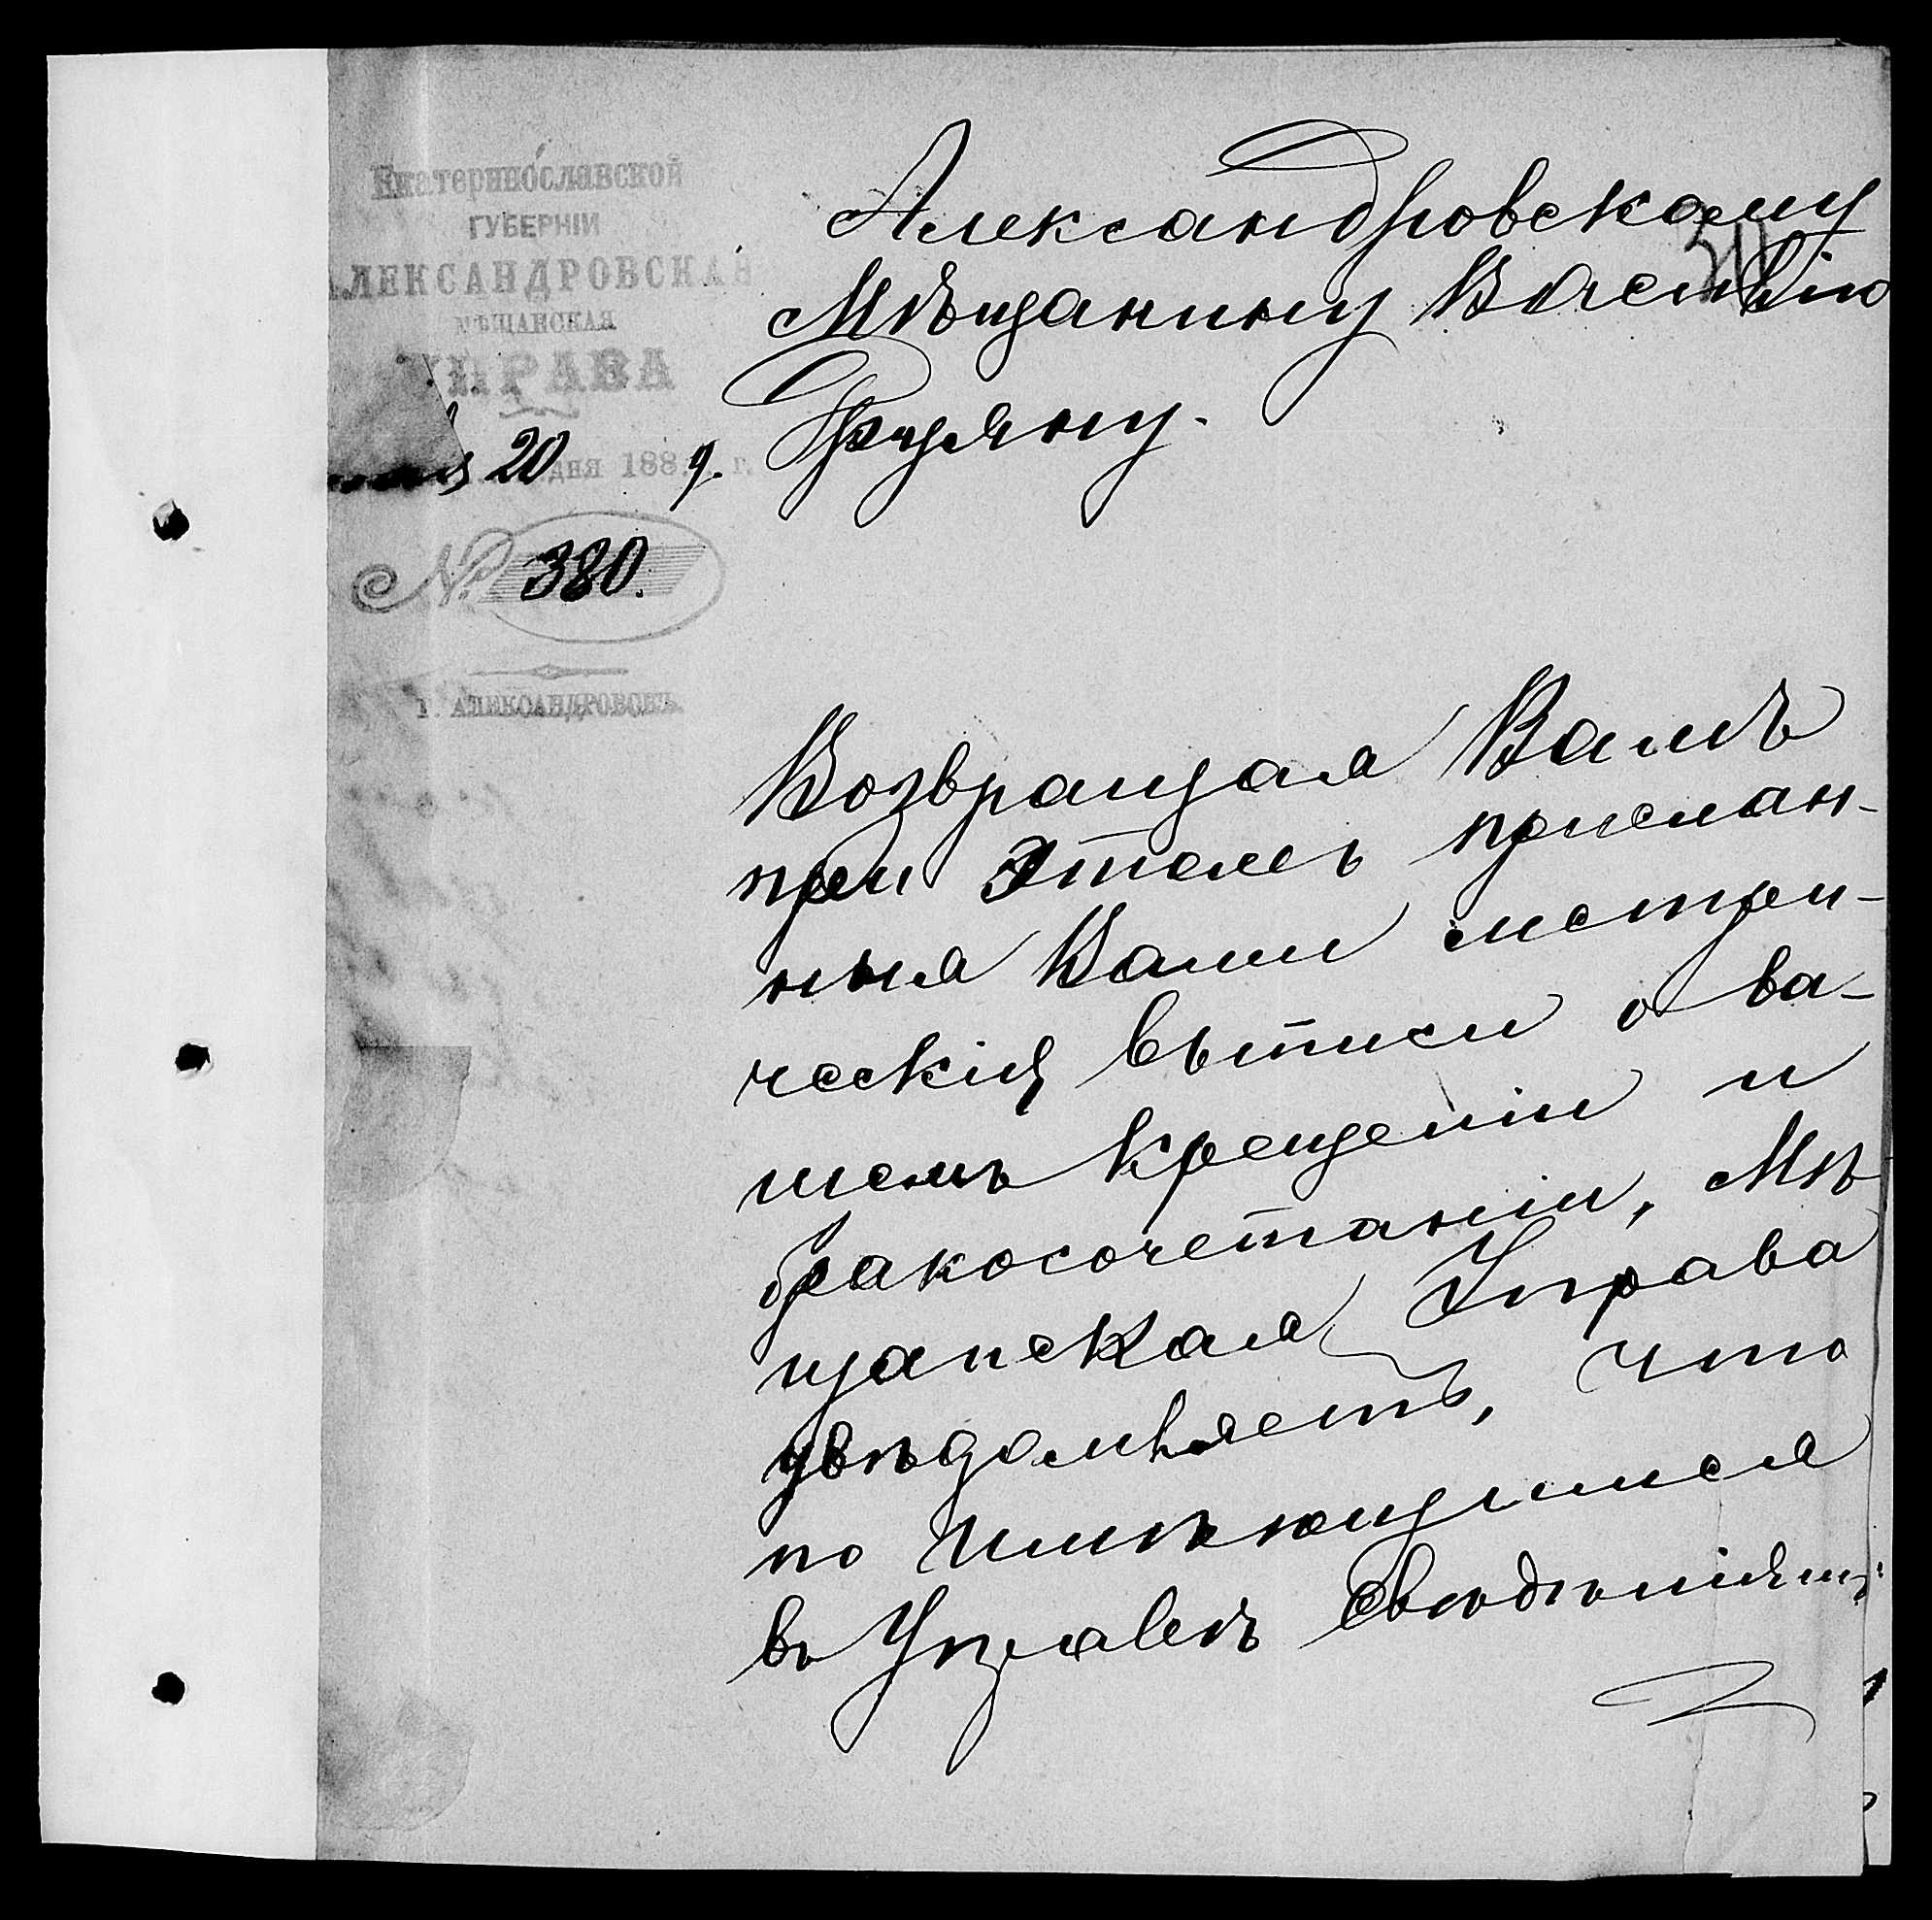 Екатеринославской
ГУБЕРНІИ
АЛЕКСАНДРОВСКАЯ
МѢЩАНСКАЯ
УПРАВА
20 дня 1889 г.
№ 380.
Г. АЛЕКСАНДРОВСКЪ.
Александровскому
Мѣщанину Василію
Возвращая Вамъ
при этомъ прислан-
ныя Вами метри-
ческія выписи о ва-
шемъ крещеніи и
бракосочетаніи, Мѣ
щанская Управа
увѣдомляетъ, что
по имѣющимся
въ Управѣ свѣдѣніямъ